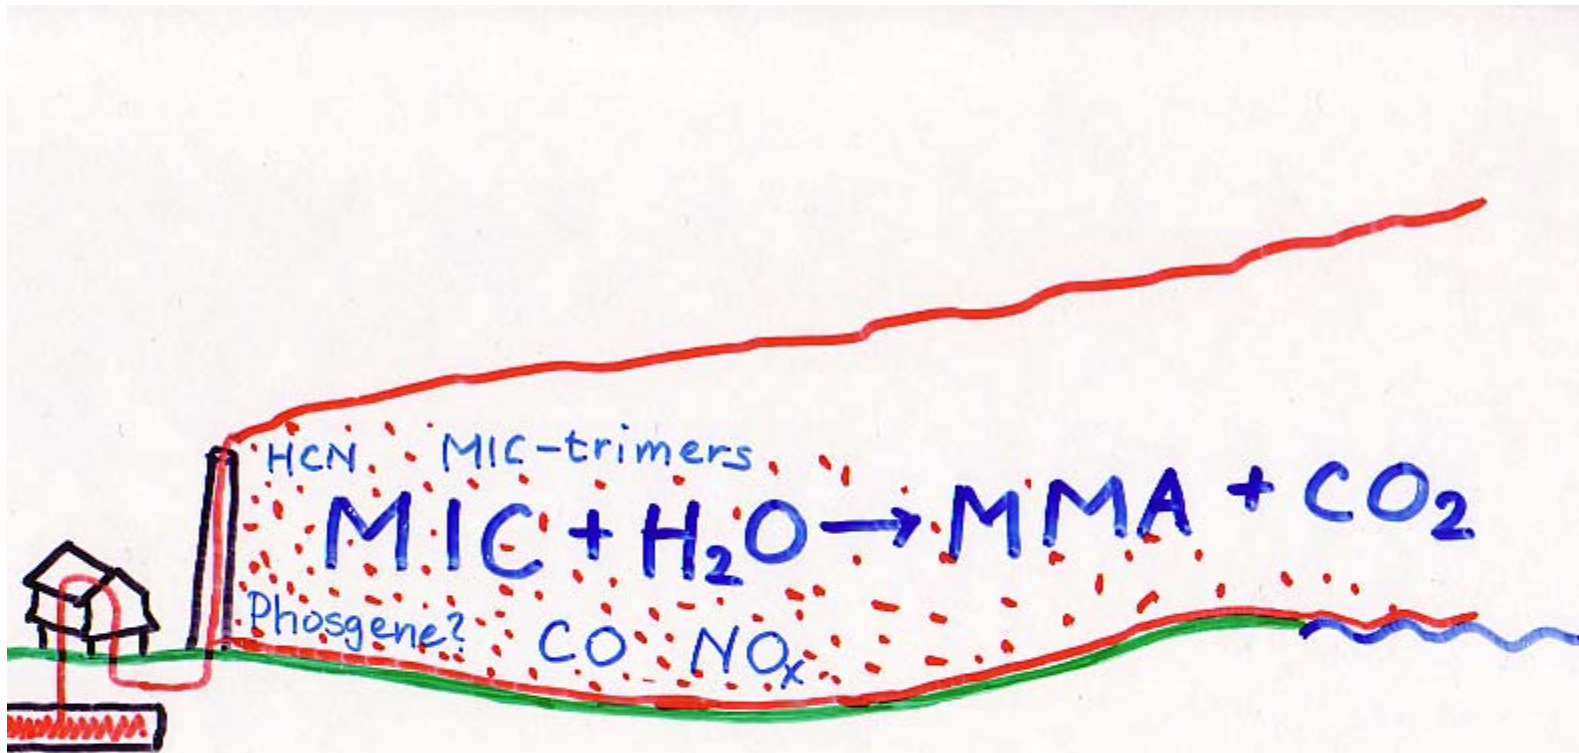 HCN MIC-trimers
MIC + H₂O → MMA + CO₂
Phosgene? CO NOₓ